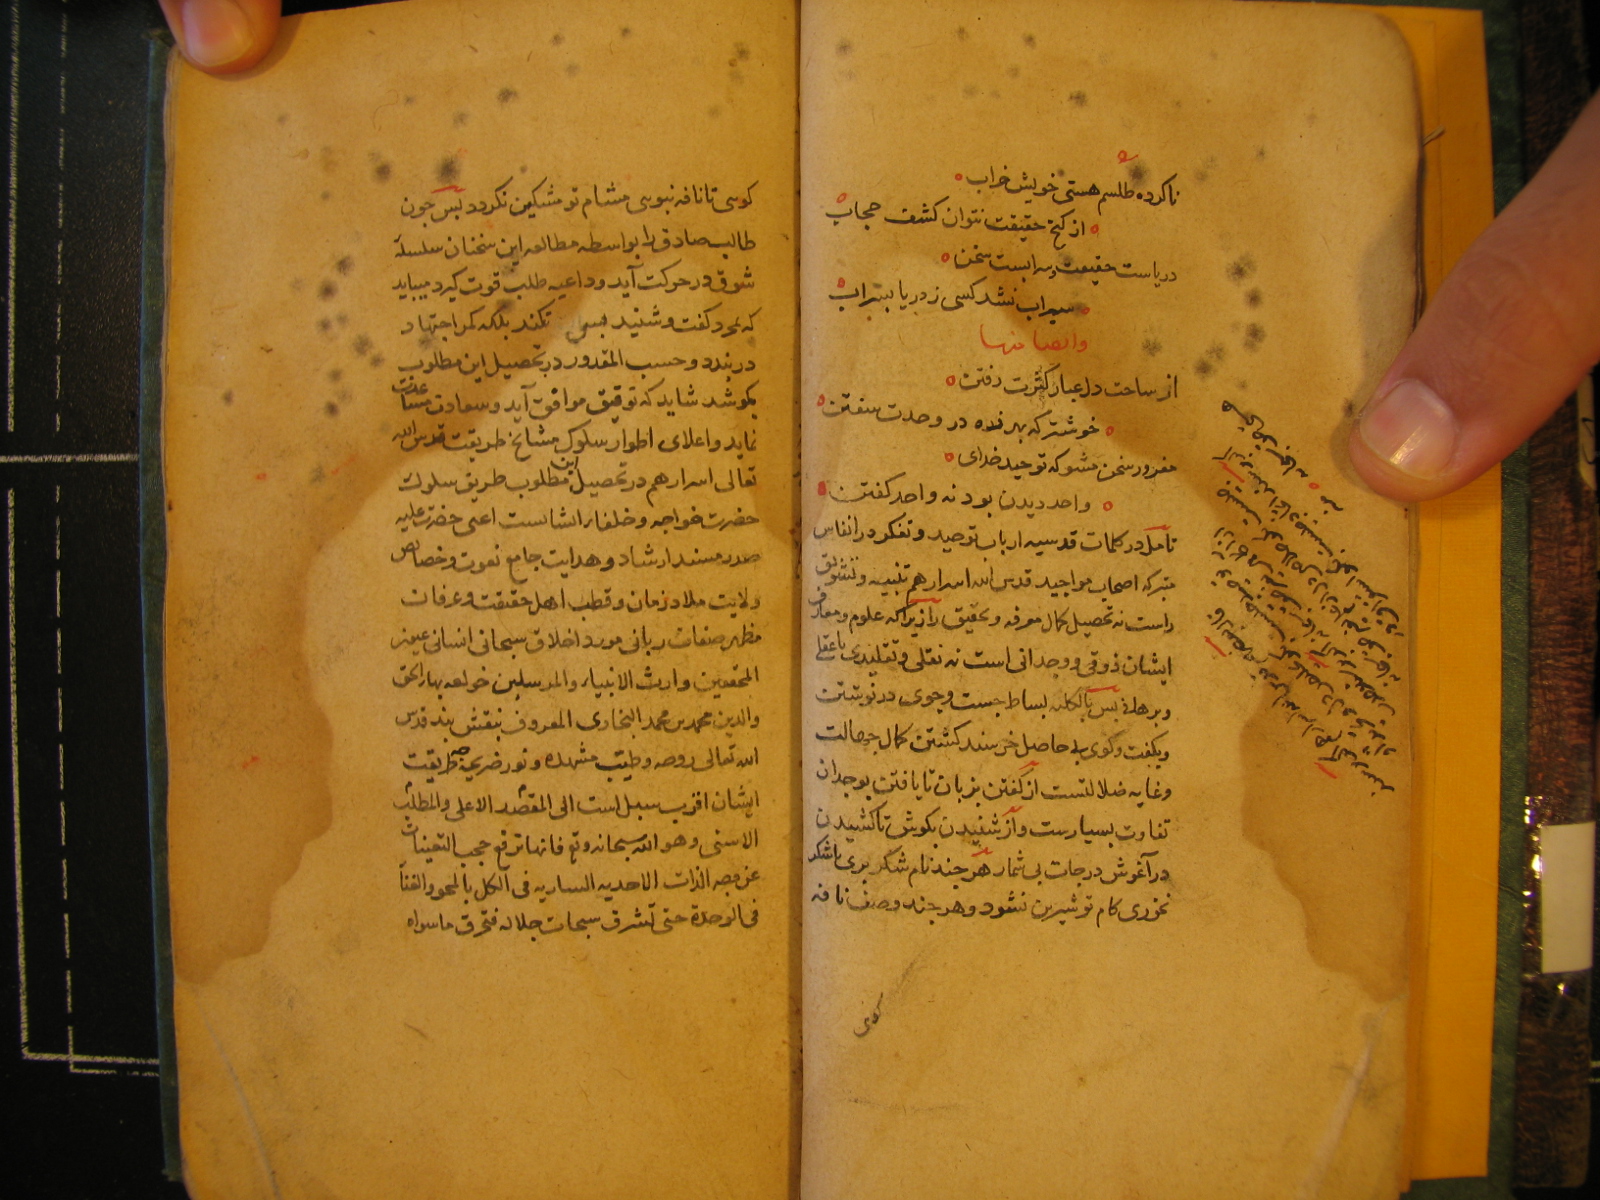 ناکرده طلسم هستی خویش خراب
از کنج حقیقت نتوان کشف حجاب
دریاست حقیقت و سرابست سخن
سیراب نشد کسی ز دریا بسراب
وایضا منها
از ساحت دل غبار کثرت رفتن
خوشتر که بهرزه در وحدت سفتن
مغرور سخن مشو که توحید خدای
واحد دیدن بود نه واحد کفتن
تأمل در کلمات قدسیه ارباب توحید و تفکر در انفاس
متبرکه اصحاب مواجید قدس الله اسرارهم تنبیه و تشویق
راست نه تحصیل کمال معرفه و تحقیق را زیرا که علوم و معارف
ایشان ذوقی و وجدانی است نه نقلی و تقلیدی یا عقلی
و برهانی پس بالکلیه بساط جست وجوی در نوشتن
و بکفت وکوی بی حاصل خرسند کشتن کمال جهالت
و غایه ضلالتست از کفتن بزبان تا یافتن بوجدان
تفاوت بسیارست و از شنیدن بکوش تا کشیدن
در آغوش درجات بی شمار هر چند نام شکر بری تا شکر
نخوری کام تو شیرین نشود و هر چند وصف نافه
کوی
کوئی تا نافه نبوئی مشام تو مشکین نکردد پس چون
طالب صادق را بواسطه مطالعه این سخنان سلسلهٔ
شوق در حرکت آید و داعیه طلب قوت کیرد میباید
که بمجرد کفت و شنید بس نکند بلکه کمر اجتهاد
در بندد و حسب المقدور در تحصیل این مطلوب
بکوشد شاید که توفیق موافق آید و سعادت مساعدت
نماید و اعلای اطوار سلوک مشایخ طریقت قدس الله
تعالی اسرارهم در تحصیل این مطلوب طریق سلوک
حضرت خواجه و خلفاء ایشانست اعنی حضرت علیه
صدر مسند ارشاد و هدایت جامع نعوت و خصائص
ولایت ملاذ زمان و قطب اهل حقیقت و عرفان
مظهر صفات ربانی مورد اخلاق سبحانی انسان عیون
المحققین وارث الانبیاء والمرسلین خواجه بهاء الحق
والدین محمد بن محمد البخاری المعروف بنقش بند قدس
الله تعالی روحه و طیب مشهده و نور ضریحه چه طریقت
ایشان اقرب سبل است الی المقصد الاعلی والمطلب
الاسنی وهو الله سبحانه وتع فانها ترفع حجب التعینات
عن وجه الذات الاحدیه الساریه فی الکل بالمحو والفنآ
فی الوحدة حتی تشرق سبحات جلاله فتحرق ماسواه